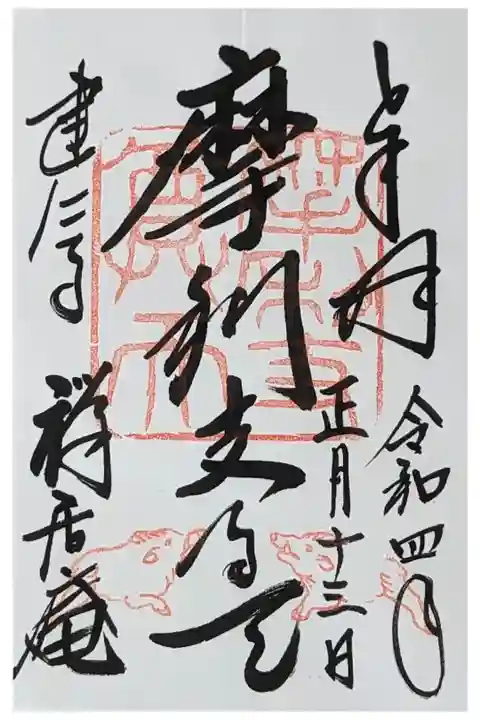 奉拝
令和四年
正月十三日
摩利支尊天
建仁寺
禅居庵
摩利支
尊天